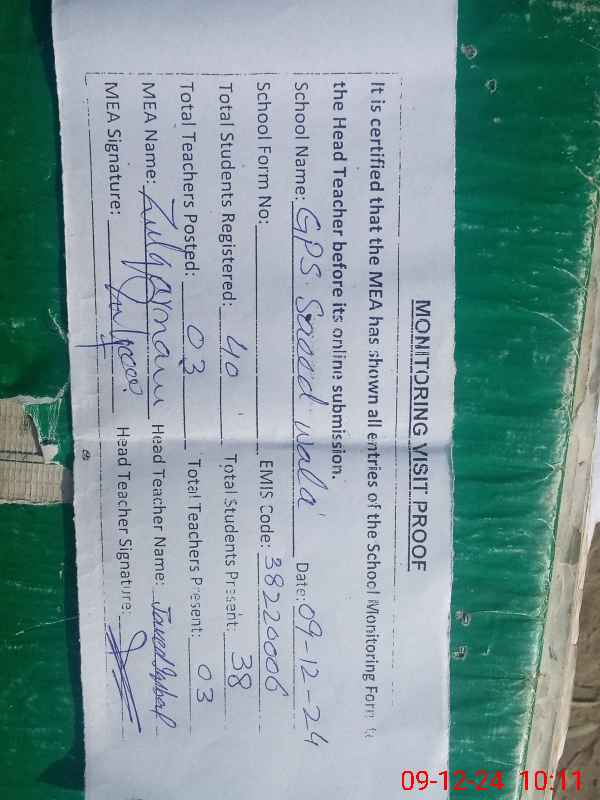 MONITORING VISIT PROOF
It is certified that the MEA has shown all entries of the School Monitoring Form to
the Head Teacher before its online submission.
School Name: GPS Saeed wala Date: 09-12-24
School Form No: EMIS Code: 38220006
Total Students Registered: 40 Total Students Present: 38
Total Teachers Posted: 03 Total Teachers Present: 03
MEA Name: Zulqarnain Head Teacher Name: Javed Iqbal
MEA Signature: Head Teacher Signature:
09-12-24 10:11